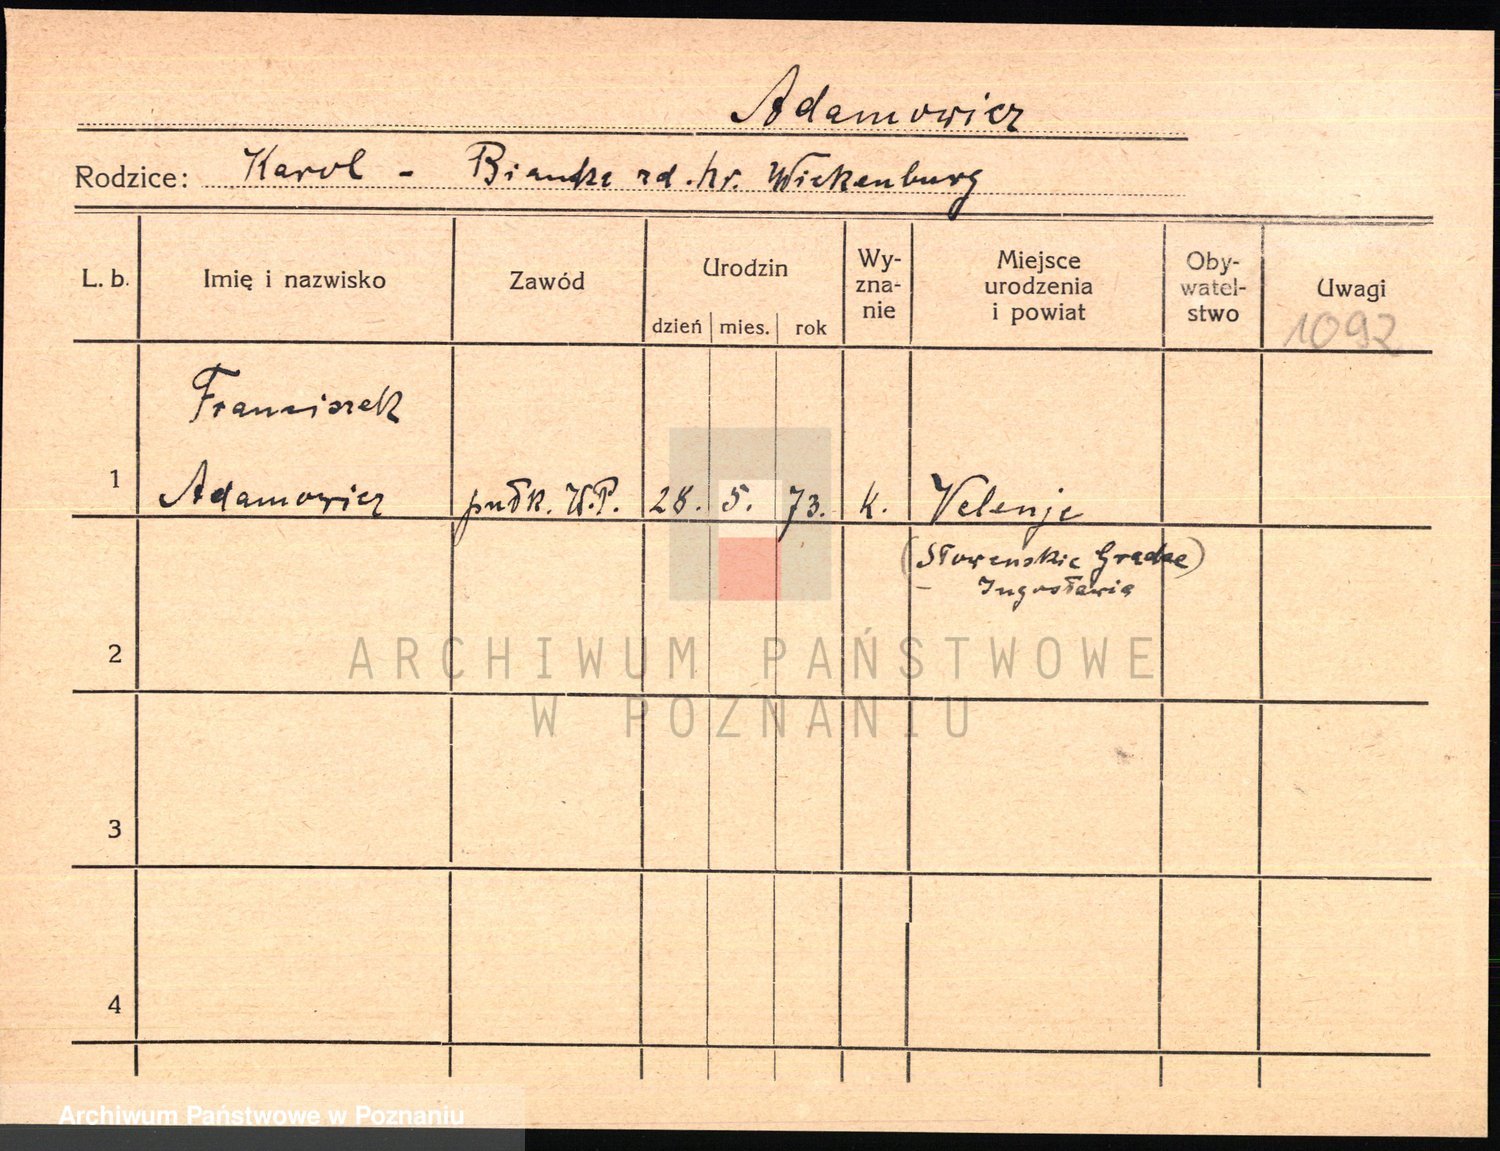 Adamowicz
Rodzice: Karol - Bianka zd. hr. Wickenburg
L. b. Imię i nazwisko Zawód Urodzin dzień mies. rok Wy-zna-nie Miejsce urodzenia i powiat Oby-watel-stwo Uwagi
1092
Franciszek
1 Adamowicz pułk. W.P. 28. 5. 73. k. Velenje
(Słowenskie Gradac)
- Jugosławia
2
ARCHIWUM PAŃSTWOWE
W POZNANIU
3
4
Archiwum Państwowe w Poznaniu